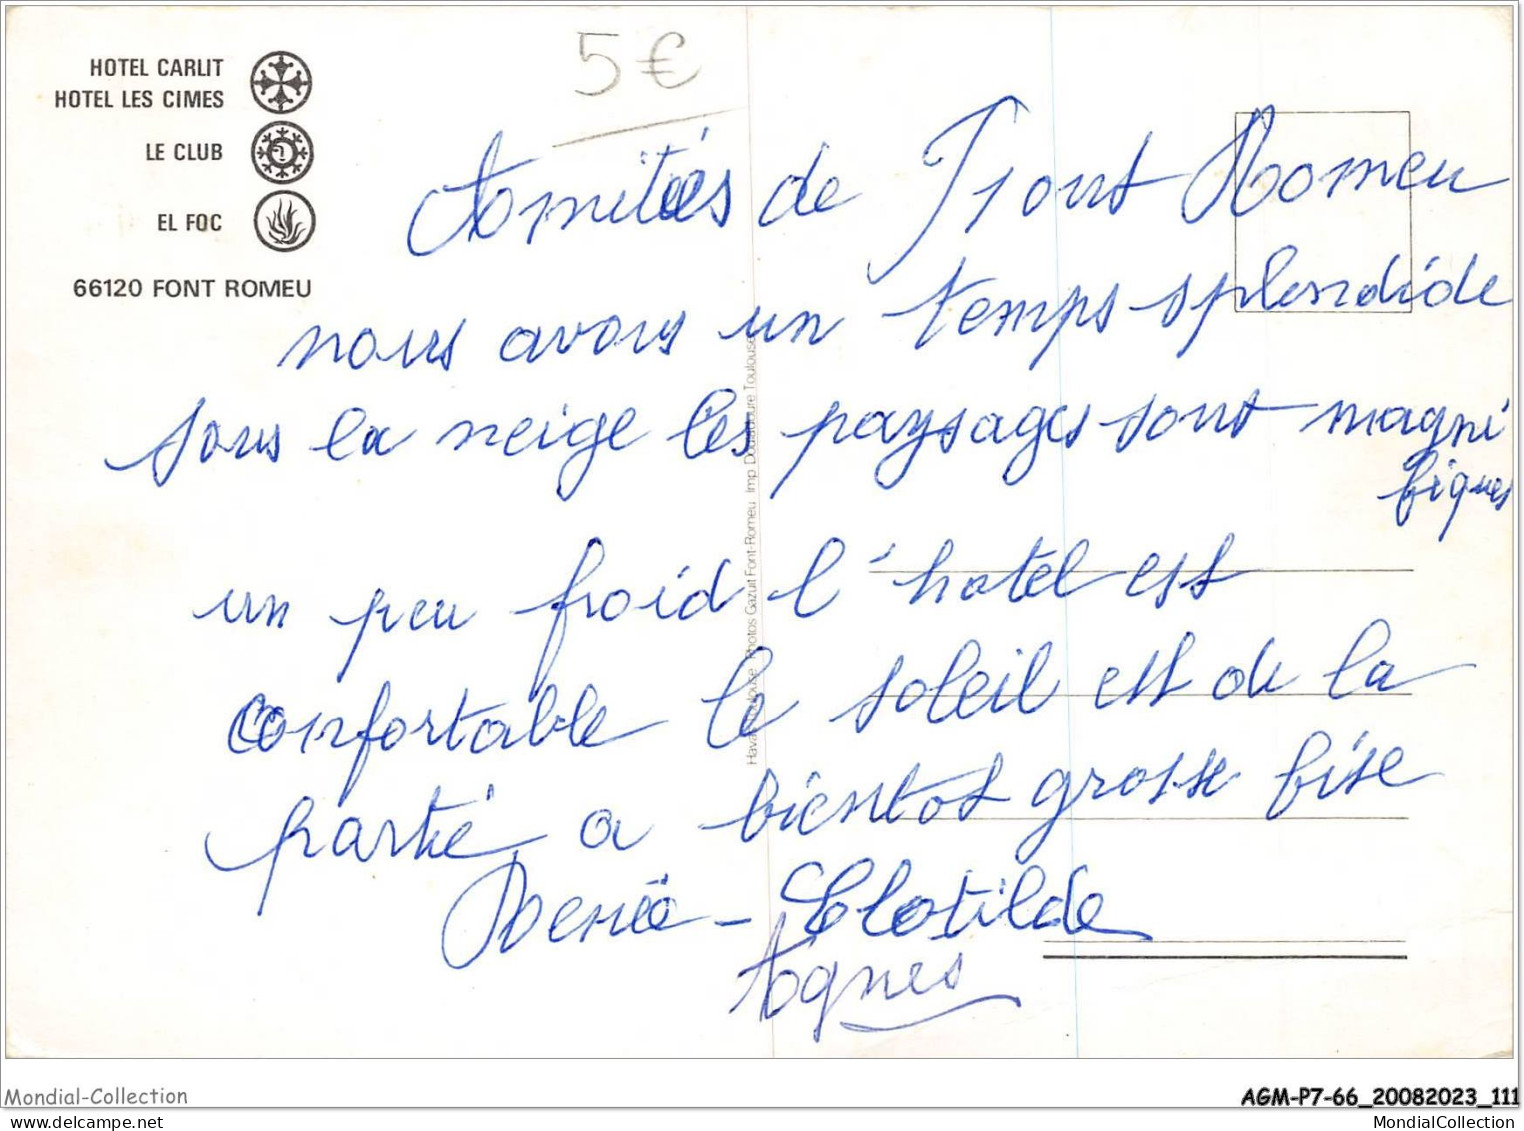 HOTEL CARLIT
HOTEL LES CIMES
LE CLUB
EL FOC
66120 FONT ROMEU
5 €
Amitiés de Font Romeu
nous avons un temps splendide
sous la neige les paysages sont magni
fiques
un peu froid l'hotel est
confortable le soleil est de la
partie a bientot grosse bise
Renée - Clotilde
Agnes
Havas Toulouse Photos Gazuit Font-Romeu Imp Doulaure Toulouse
Mondial-Collection
AGM-P7-66_20082023_111
MondialCollection